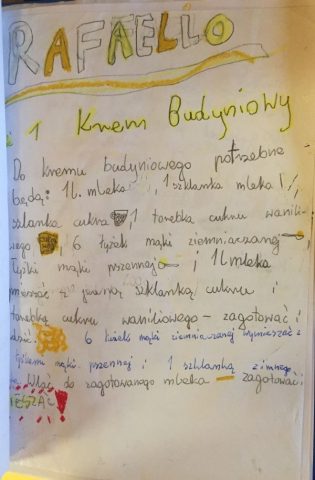 RAFAELLO
1 Krem Budyniowy
Do kremu budyniowego potrzebne
będą: 1l. mleka, 1 szklanka mleka!,
szklanka cukru, 1 torebka cukru wanilio-
wego, 6 łyżek mąki ziemniaczanej,
łyżki mąki pszennej i 1l mleka
szklanką cukru i
torebką cukru waniliowego - zagotować i
6 łyżek mąki ziemniaczanej wymieszać z
łyżkami mąki pszennej i 1 szklanką zimnego
Wlać do zagotowanego mleka zagotować
MIESZAĆ!